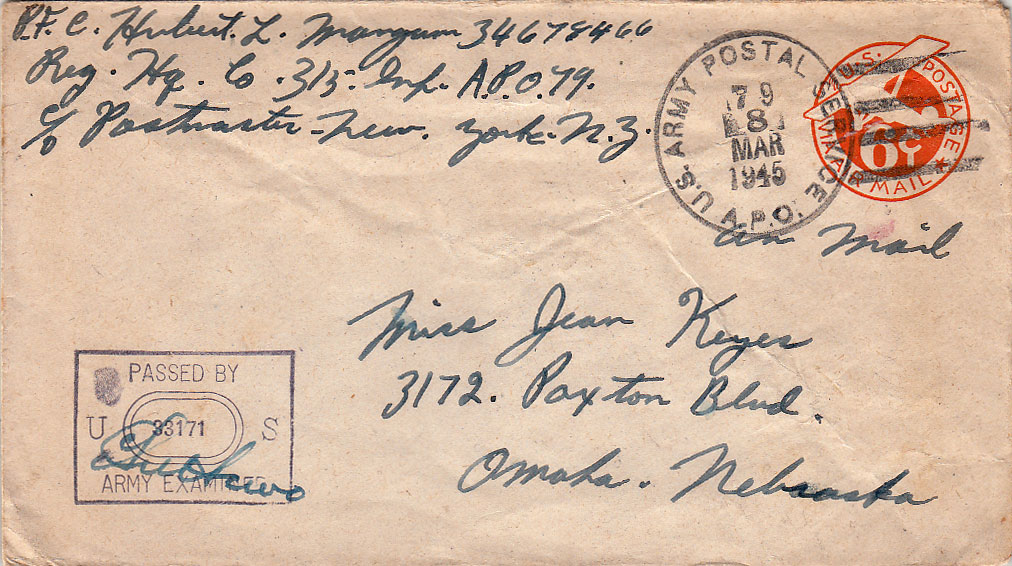 P.F.C. Hubert. L. Mangum 34678466
Reg. Hq. Co. 315. Inf. A.P.O. 79.
c/o Postmaster - New. York - N.Y.
U.S. ARMY POSTAL SERVICE
79
8
MAR
1945
A.P.O.
U.S. POSTAGE
6¢
VIA AIR MAIL
Air Mail
Miss Jean Keyes
3172. Paxton Blvd.
Omaha. Nebraska
PASSED BY
U 33171 S
ARMY EXAMINER